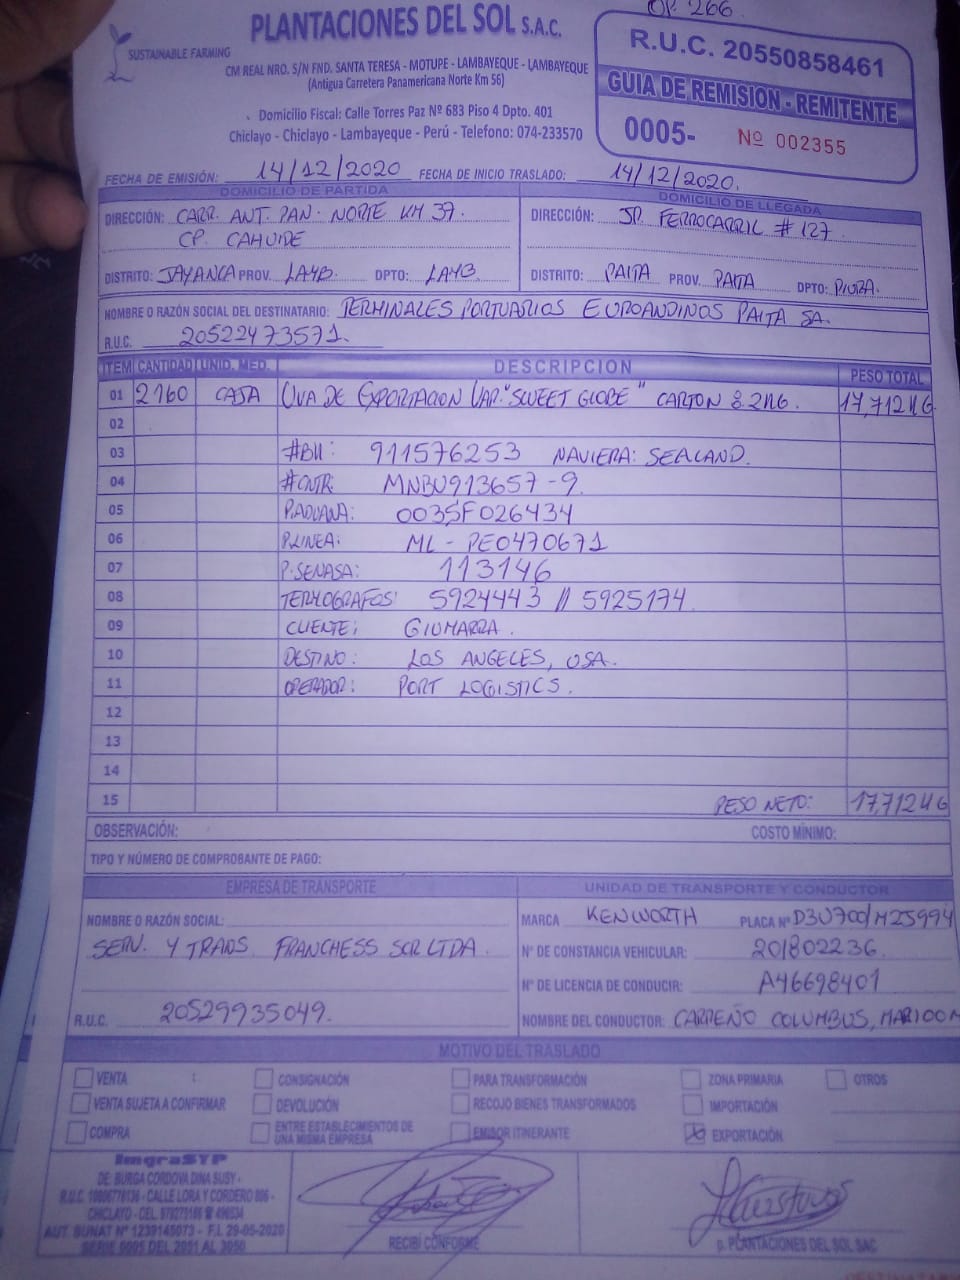 OP. 266
PLANTACIONES DEL SOL S.A.C.
SUSTAINABLE FARMING
CM REAL NRO. S/N FND. SANTA TERESA - MOTUPE - LAMBAYEQUE - LAMBAYEQUE
(Antigua Carretera Panamericana Norte Km 56)
Domicilio Fiscal: Calle Torres Paz Nº 683 Piso 4 Dpto. 401
Chiclayo - Chiclayo - Lambayeque - Perú - Telefono: 074-233570
R.U.C. 20550858461
GUIA DE REMISION - REMITENTE
0005- Nº 002355
FECHA DE EMISIÓN: 14/12/2020 FECHA DE INICIO TRASLADO: 14/12/2020.
DOMICILIO DE PARTIDA
DIRECCIÓN: CARR. ANT. PAN. NORTE KM 37.
CP. CAHUIDE
DISTRITO: JAYANCA PROV. LAMB. DPTO: LAMB
DOMICILIO DE LLEGADA
DIRECCIÓN: JR. FERROCARRIL # 127
DISTRITO: PAITA PROV. PAITA DPTO: PIURA.
NOMBRE O RAZÓN SOCIAL DEL DESTINATARIO: TERMINALES PORTUARIOS EUROANDINOS PAITA SA.
R.U.C. 20522473571.
ITEM CANTIDAD UNID. MED. DESCRIPCION PESO TOTAL
01 2160 CAJA UVA DE EXPORTACION VAR. "SWEET GLOBE" CARTON 8.2KG. 17,712KG
02
03 #BK: 911576253 NAVIERA: SEALAND.
04 #CNTR: MNBU913657-9.
05 P.ADUANA: 0035F026434
06 P.LINEA: ML - PE0470671
07 P.SENASA: 113146
08 TERMOGRAFOS: 5924443 // 5925174
09 CLIENTE: GIUMARRA.
10 DESTINO: LOS ANGELES, USA.
11 OPERADOR: PORT LOGISTICS.
12
13
14
15 PESO NETO: 17,712KG
OBSERVACIÓN: COSTO MÍNIMO:
TIPO Y NÚMERO DE COMPROBANTE DE PAGO:
EMPRESA DE TRANSPORTE
NOMBRE O RAZÓN SOCIAL:
SERV. Y TRANS. FRANCHESS SCRLTDA.
R.U.C. 20529935049.
UNIDAD DE TRANSPORTE Y CONDUCTOR
MARCA KENWORTH PLACA Nº D3U700/M2S994
Nº DE CONSTANCIA VEHICULAR: 201802236.
Nº DE LICENCIA DE CONDUCIR: A46698401
NOMBRE DEL CONDUCTOR: CARREÑO COLUMBUS,
MOTIVO DEL TRASLADO
VENTA CONSIGNACIÓN PARA TRANSFORMACIÓN ZONA PRIMARIA OTROS
VENTA SUJETA A CONFIRMAR DEVOLUCIÓN RECOJO BIENES TRANSFORMADOS IMPORTACIÓN
COMPRA ENTRE ESTABLECIMIENTOS DE UNA MISMA EMPRESA EMISOR ITINERANTE EXPORTACIÓN
ImgraSYP
DE: BURGA CORDOVA DINA SUSY -
R.U.C. - CALLE LORA Y CORDERO 806 -
CHICLAYO - CEL.
AUT. SUNAT Nº 1239145073 - F.I. 29-05-2020
SERIE 0005 DEL 2051 AL 3050
RECIBÍ CONFORME
p. PLANTACIONES DEL SOL SAC